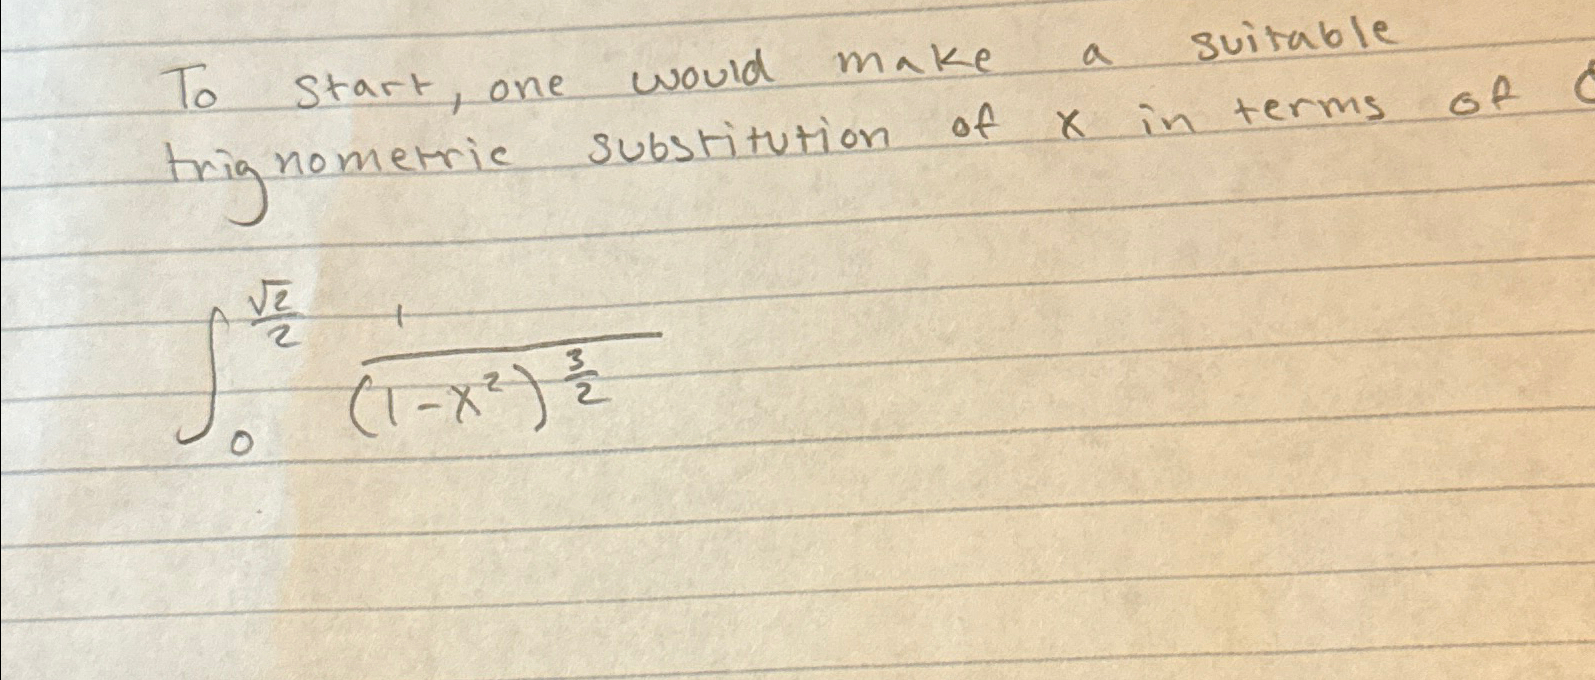 To start, one would make a suitable
trignometric substitution of x in terms of
∫₀^(√2/2) 1/(1-x²)^(3/2)